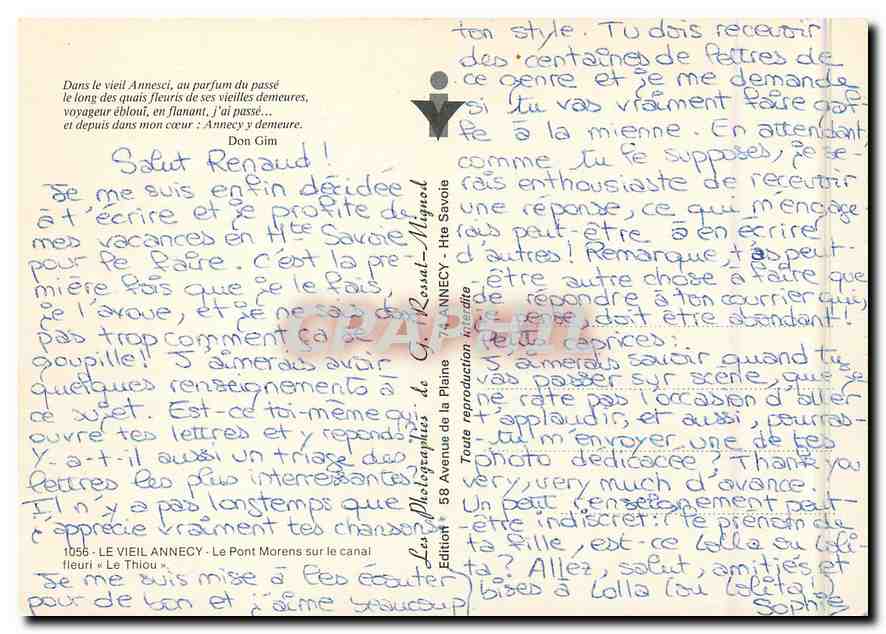 Dans le vieil Annesci, au parfum du passé
le long des quais fleuris de ses vieilles demeures,
voyageur éblouï, en flanant, j'ai passé...
et depuis dans mon cœur : Annecy y demeure.
Don Gim
Salut Renaud !
Je me suis enfin décidée
à t'écrire et je profite de
mes vacances en Hte Savoie
pour le faire. C'est la pre-
mière fois que je le fais,
je l'avoue, et je ne sais
pas trop comment ça se
goupille ! J'aimerais avoir
quelques renseignements à
ce sujet. Est-ce toi-même qui
ouvre tes lettres et y réponds ?
Y-a-t-il aussi un triage des
lettres les plus interressantes ?
Il n'y a pas longtemps que
j'apprécie vraiment tes chansons
1056 - LE VIEIL ANNECY - Le Pont Morens sur le canal
fleuri « Le Thiou ».
Je me suis mise à les écouter
pour de bon et j'aime beaucoup
Les Photographies de G. Rossat-Mignod
Edition 58 Avenue de la Plaine 74 ANNECY - Hte Savoie
Toute reproduction interdite
CPAPHIL
ton style. Tu dois recevoir
des centaines de lettres de
ce genre et je me demande
si tu vas vraiment faire gaf-
fe à la mienne. En attendant,
comme tu le supposes, je se-
rais enthousiaste de recevoir
une réponse, ce qui m'engage-
rais peut-être à en écrire
d'autres ! Remarque, t'as peut-
être autre chose à faire que
de répondre à ton courrier qui,
je pense, doit être abondant !
Petits caprices :
J'aimerais savoir quand tu
vas passer sur scène, que je
ne rate pas l'occasion d'aller
t'applaudir, et aussi, pourras-
-tu m'envoyer une de tes
photo dédicacée ? Thank you
very, very much d'avance.
Un petit renseignement peut-
-être indiscret : le prénom de
ta fille, est-ce Lolla ou Loli-
ta ? Allez, salut, amitiés et
bises à Lolla (ou Lolita)
Sophie